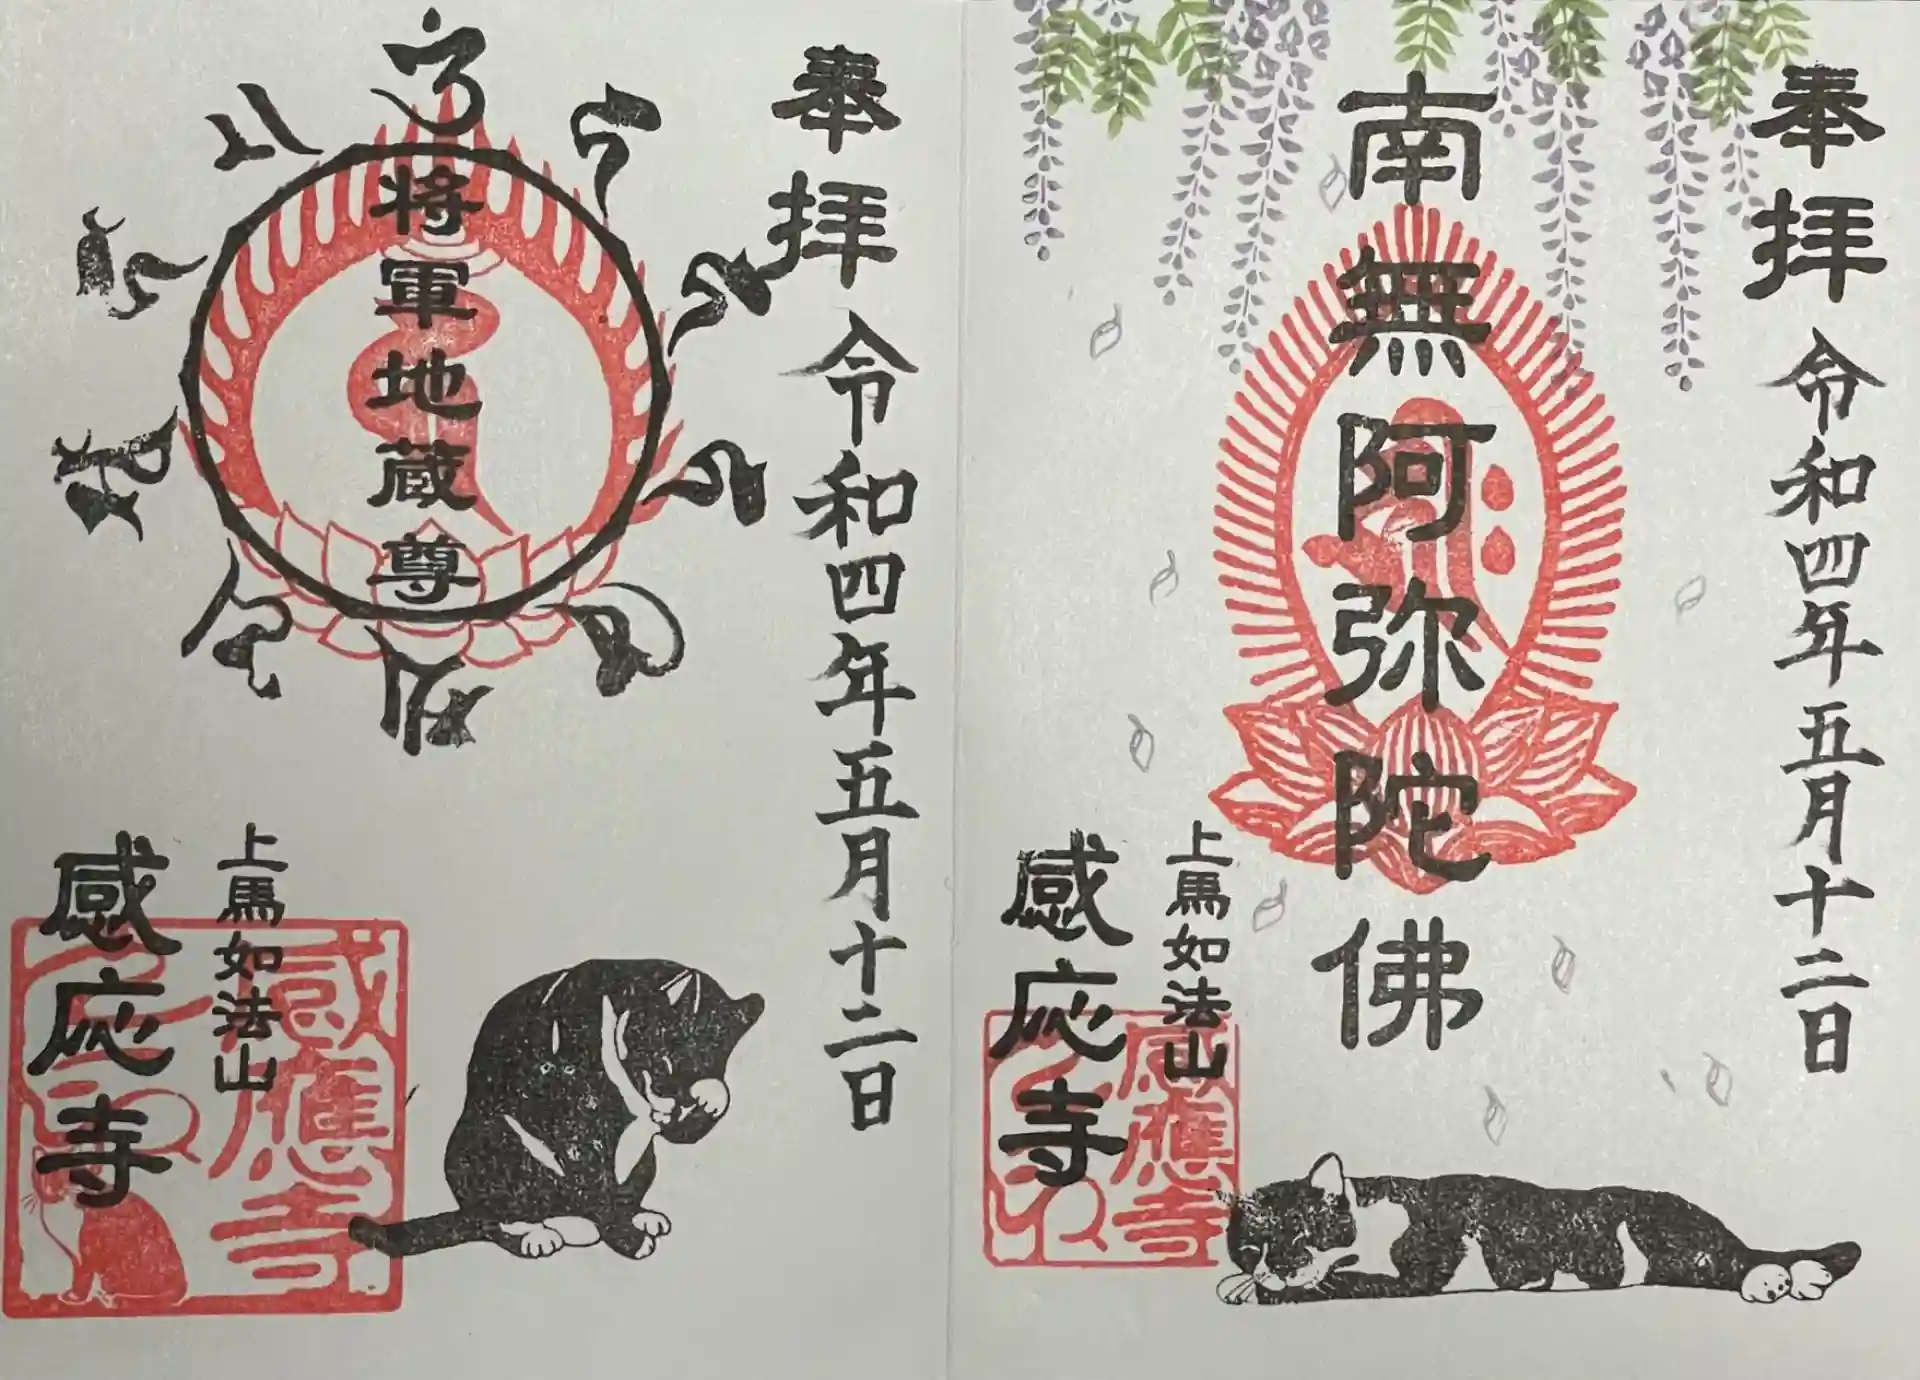 奉拝 令和四年五月十二日
南無阿弥陀佛
上馬如法山
感応寺
感應寺
奉拝 令和四年五月十二日
将軍地蔵尊
上馬如法山
感応寺
感應寺